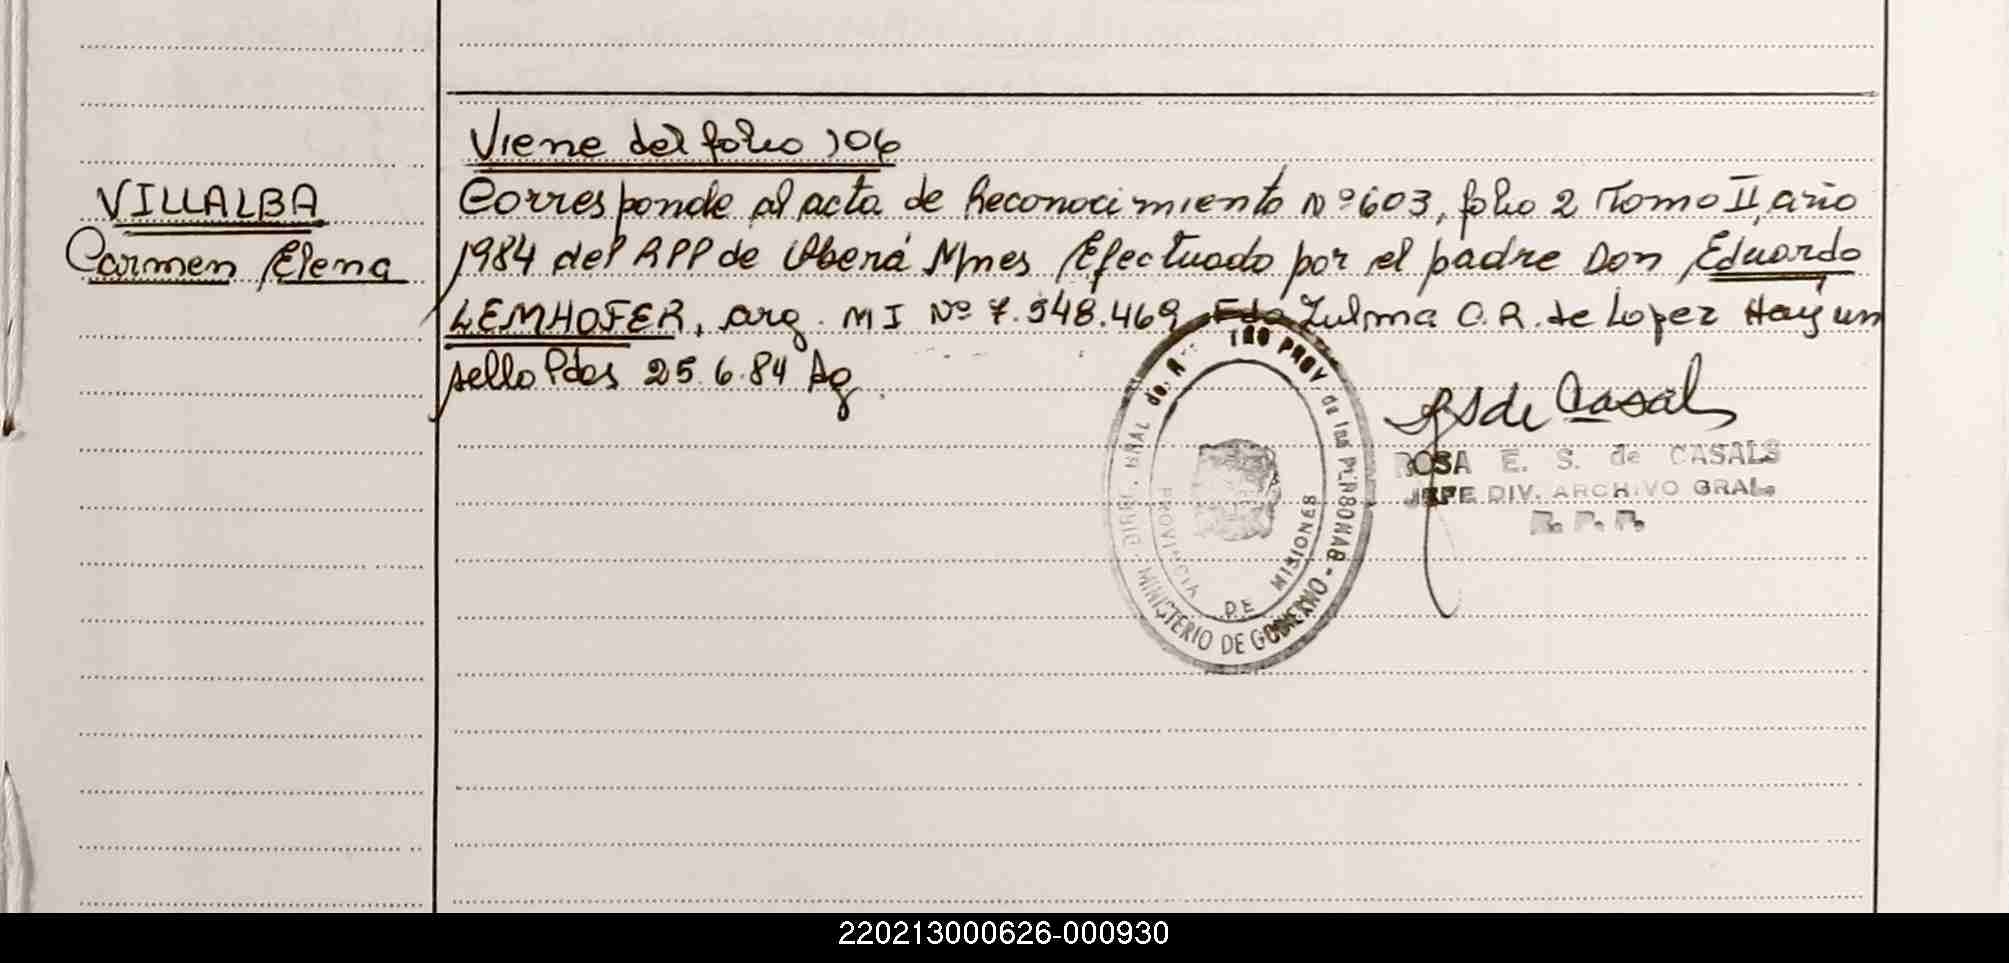 Viene del folio 106
VILLALBA
Carmen Elena
Corresponde al acta de Reconocimiento Nº 603, folio 2 Tomo II, año
1984 del RPP de Oberá Mnes Efectuado por el padre Don Eduardo
LEMHOFER, arg. M I Nº 7.548.469 Fdo Zulma O. R. de Lopez Hay un
sello Pdas 25.6.84 Ag.
de Casals
ROSA E. S. de CASALS
JEFE DIV. ARCHIVO GRAL.
R. P. P.
DIREC. GRAL del PROV de las PERSONAS - MINISTERIO DE GOBIERNO -
PROVINCIA DE MISIONES
220213000626-000930